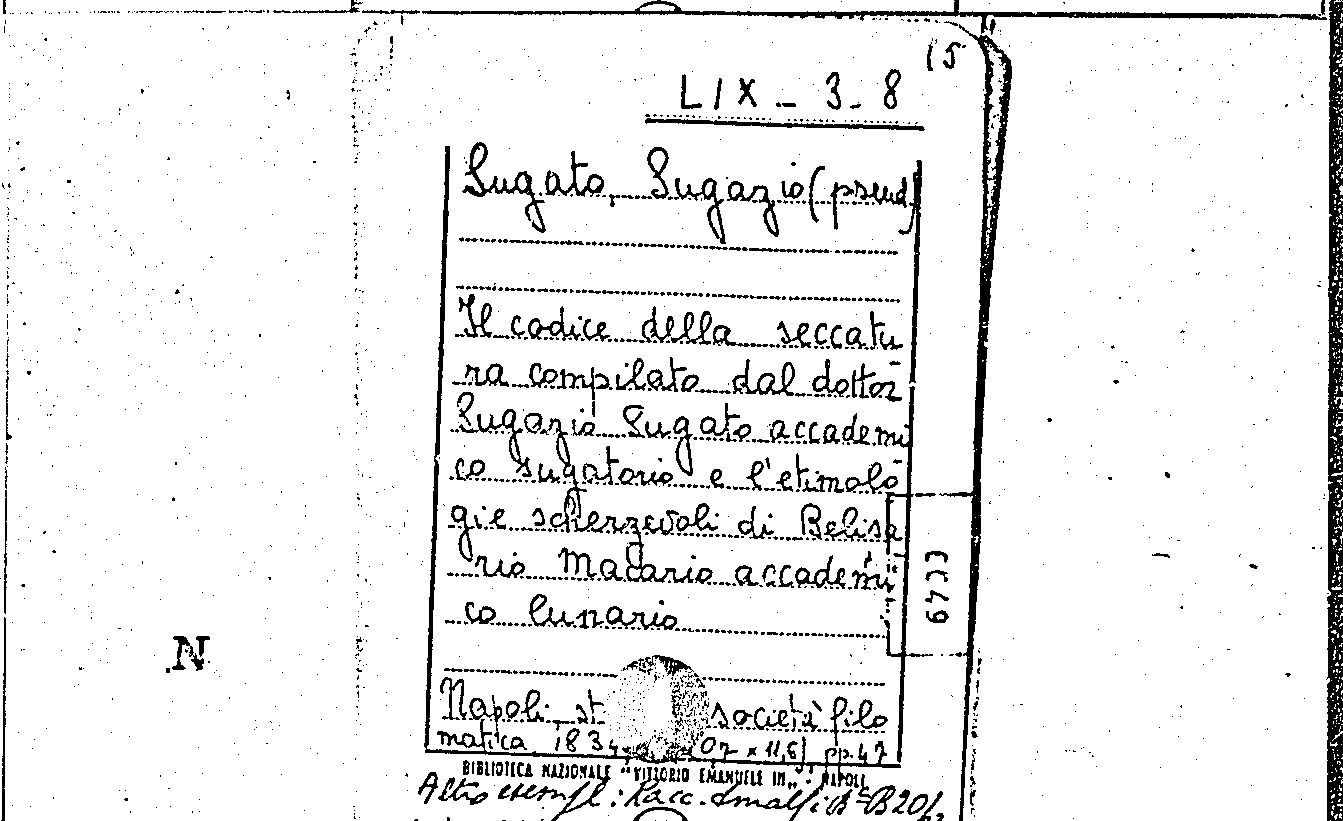 15
LIX - 3 - 8
Sugato, Sugazio (pseud)
Il codice della seccatu
ra compilato dal dottor
Sugazio Sugato accademi
co sugatorio e l'etimolo
gie scherzevoli di Belisa
rio Macario accademi
co lunario
N
Napoli, st società filo
matica, 1834, 07 x 11,6) pp. 47
BIBLIOTECA NAZIONALE "VITTORIO EMANUELE III" - NAPOLI
Altro esempl: Racc. Amalfi B